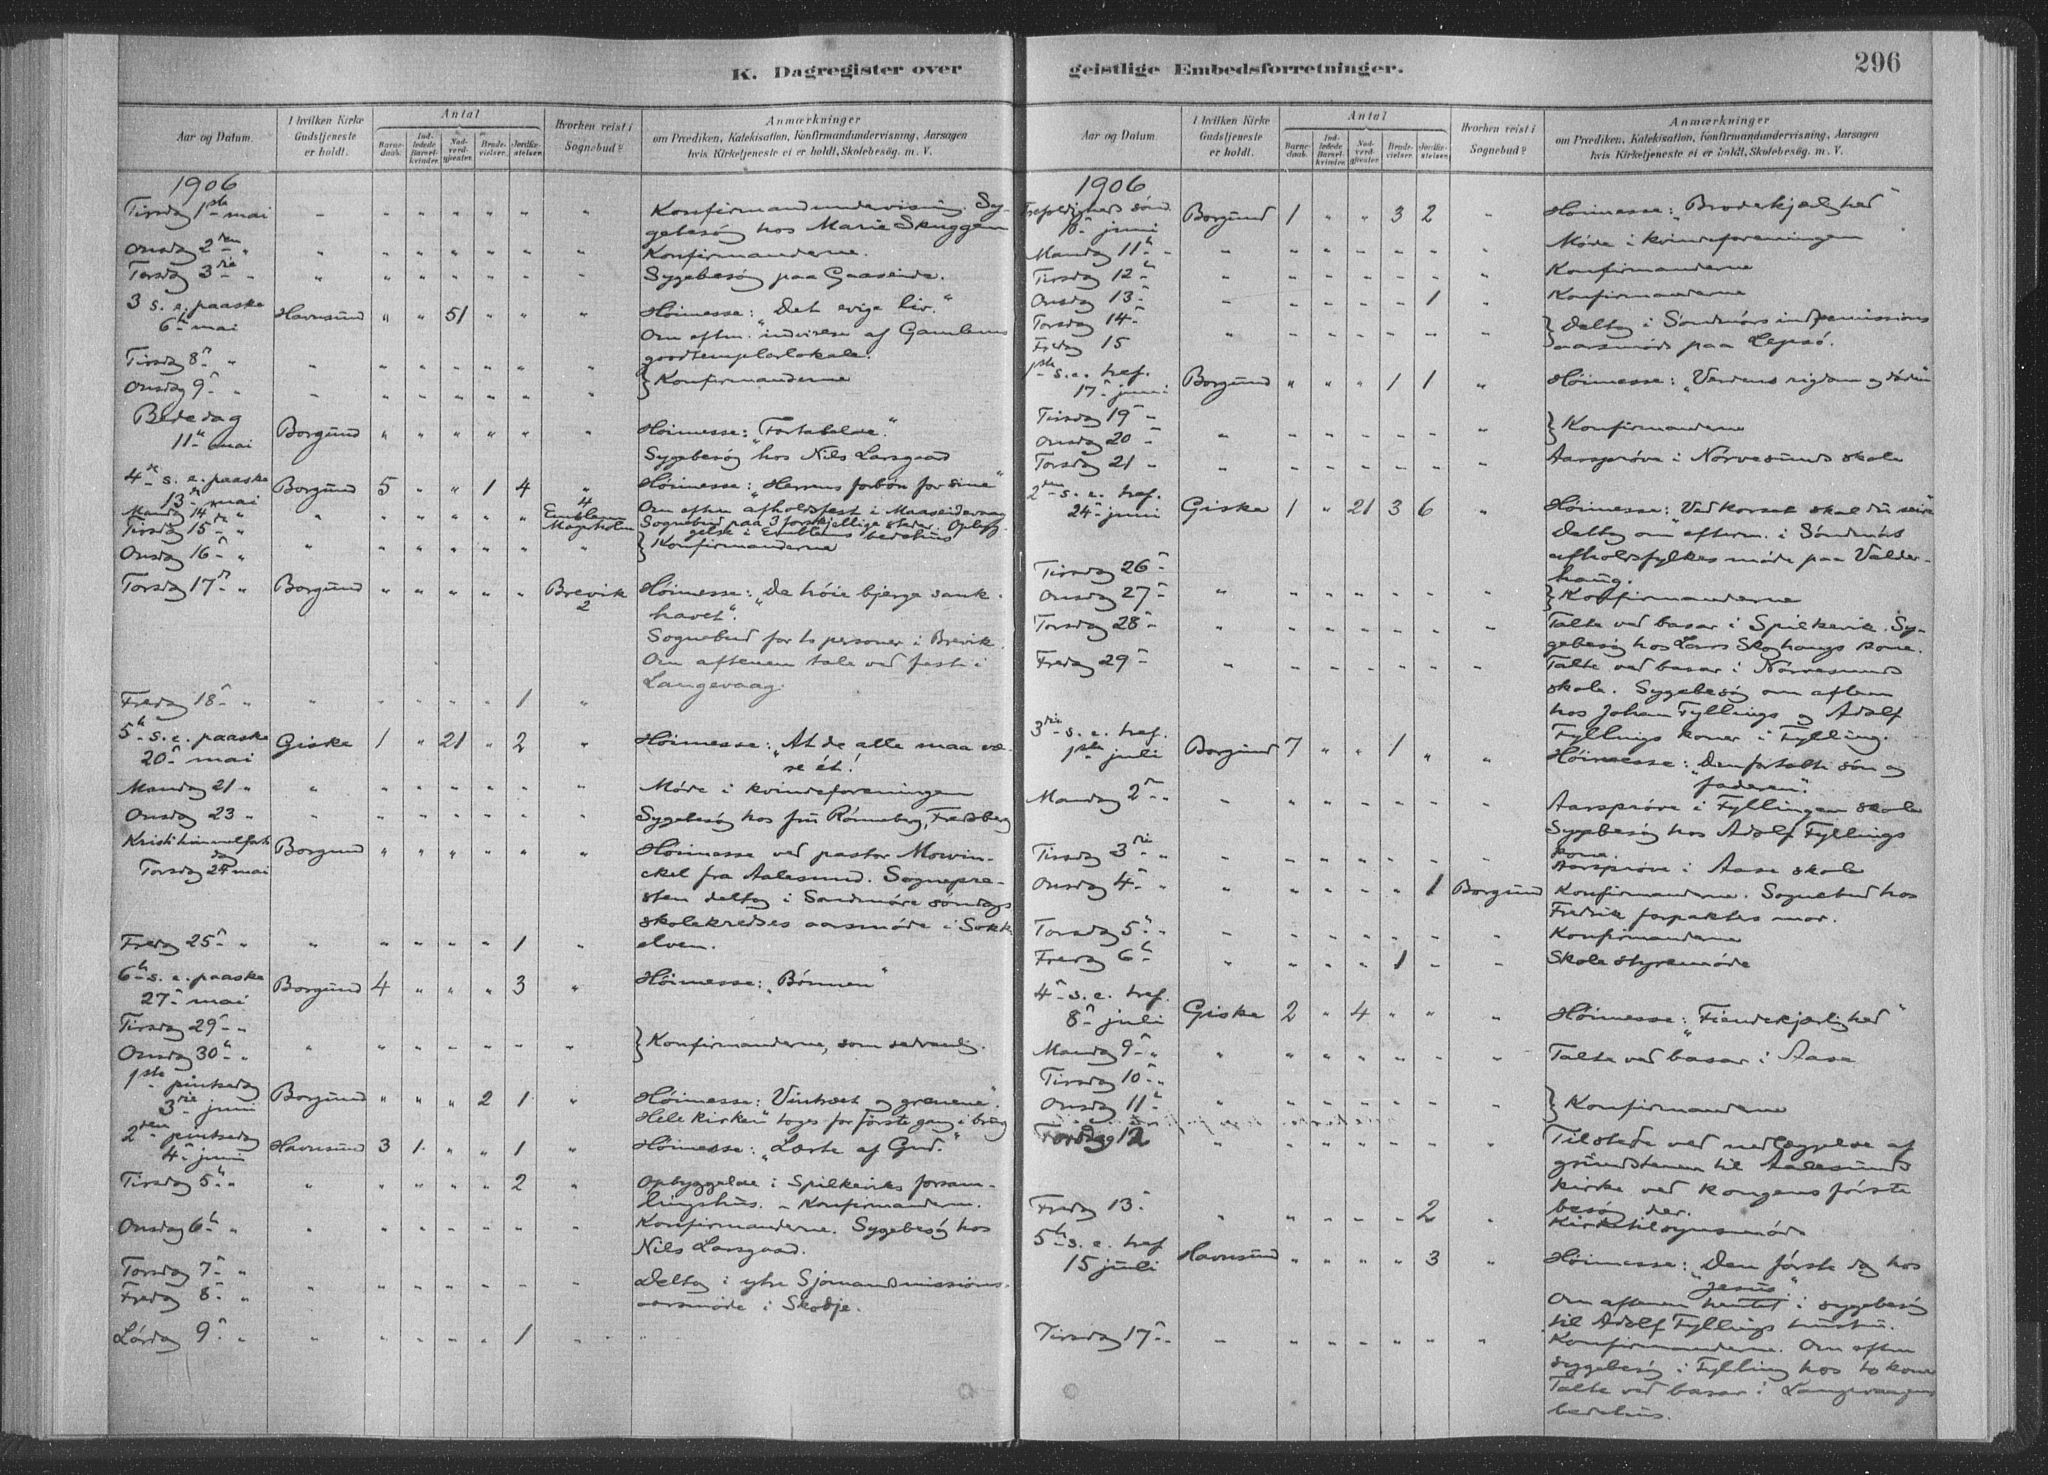 K. Dagregister over
Aar og Datum.
I hvilken Kirke Gudstjeneste er holdt.
Antal
Barnedaab.
Indledede Barselkvinder.
Nadverdgjæster.
Brudevielser.
Jordfæstelser.
Hvorhen reist i Sognebud?
Anmærkninger
om Prædiken, Katekisation, Konfirmandundervisning, Aarsagen
hvis Kirketjeneste ei er holdt, Skolebesøg. m. V.
1906
Tirsdag 1ste mai " " " " " " " Konfirmandundervisning. Sy-
gebesøg hos Marie Skuggen
Onsdag 2den " " " " " " " " Konfirmanderne.
Torsdag 3die " " " " " " " " Sygebesøg paa Gaaseide.
3 s. e. paaske Havnsund " " 51 " " " Høimesse: „Det evige liv."
6te mai
Om eftm. indvielse af Gamlems
goodtemplarlokale.
Tirsdag 8de " " " " " " " "
Onsdag 9de " " " " " " " " } Konfirmanderne
Bededag
11te mai Borgund " " " " " " Høimesse: „Fortabelse."
Sygebesøg hos Nils Larsgaard
4de s. e. paaske Borgund 5 " " 1 4 " Høimesse: „Herrens forbøn for sine"
13de mai
Mandag 14de " " " " " " " 4 Emblem Om eften afholdsfest i
Tirsdag 15de " Magerholm Sognebud paa 3 forskjellige steder. Opbyg-
gelse i Emblems bedehus
Onsdag 16de " " " " " " " " } Konfirmanderne
Torsdag 17de " Borgund " " " " " Brevik 2 Høimesse: „De høie bjerge sank i
havet".
Sognebud for to personer i Brevik.
Om aftenen tale ved fest i
Langevaag.
Fredag 18de " " " " " " 1 "
5te s. e. paaske Giske 1 " 21 " 2 " Høimesse: „At de alle maa væ-
20de mai re ét!
Mandag 21 " " " " " " " " Møde i kvindeforeningen
Onsdag 23 " " " " " " " " Sygebesøg hos fru Rønneberg, Fredsberg
Kristi himmelfarts
dag Borgund " " " " " " Høimesse ved pastor Mowin-
Torsdag 24de mai ckel fra Aalesund. Sognepre-
sten deltog i Søndmøre søndags
skolekredses aarsmøde i Sokk-
elven.
Fredag 25de " " " " " " 1 "
6te s. e. paaske Borgund 4 " " " 3 " Høimesse: „Bønnen"
27de mai
Tirsdag 29de "
Onsdag 30te " " " " " " " " } Konfirmanderne, som sedvanlig.
1ste pintsedag
3die juni Borgund " " " 2 1 " Høimesse: Vintræet og grenene".
Hele kirken toges for første gang i brug
2den pintsedag
4de juni Havnsund 3 1. " " 1 " Høimesse: „Lærte af Gud."
Tirsdag 5te " " " " " " 2 " Opbyggelse i Spilkeviks forsam-
lingshus. - Konfirmanderne.
Onsdag 6te " " " " " " " " Konfirmanderne. Sygebesøg hos
Nils Larsgaard.
Torsdag 7de "
Fredag 8de " " " " " " " " Deltog i ytre Sjømandsmissions-
aarsmøde i Skodje.
Lørdag 9de " " " " " " 1 " "
geistlige Embedsforretninger.
296
Aar og Datum.
I hvilken Kirke Gudstjeneste er holdt.
Antal
Barnedaab.
Indledede Barselkvinder.
Nadverdgjæster.
Brudevielser.
Jordfæstelser.
Hvorhen reist i Sognebud?
Anmærkninger
om Prædiken, Katekisation, Konfirmandundervisning, Aarsagen
hvis Kirketjeneste ei er holdt, Skolebesøg. m. V.
1906
Trefoldigheds sønd. Borgund 1 " " 3 2 " Høimesse: „Broderkjærlighed"
10. juni
Mandag 11te " " " " " " " " Møde i kvindeforeningen
Tirsdag 12te " " " " " " " Konfirmanderne
Onsdag 13de " " " " " 1 " Konfirmanderne
Torsdag 14de
Fredag 15 " " " " " " " } Deltog i Søndmørs indremissions
aarsmøde paa Lepsø.
1ste s. e. tref. Borgund " " " 1 1 " Høimesse: „Verdens rigdom og
17de juni
Tirsdag 19de "
Onsdag 20de " " " " " " " " } Konfirmanderne
Torsdag 21 " " " " " " " " Aarsprøve i Nørvesunds skole
2den s. e. tref.
24de juni Giske 1 " 21 3 6 " Høimesse: „Ved korset skal du seire"
Deltog om efterm. i Søndmørs
afholdsfylkes møde paa Valder-
haug.
Tirsdag 26de
Onsdag 27de " " " " " " " } Konfirmanderne
Torsdag 28de " " " " " " " Talte ved basar i Spilkevik. Sy-
gebesøg hos Lars Skoghaugs kone.
Fredag 29de " " " " " " " Talte ved basar i Nørvesunds
skole. Sygebesøg om aftenen
hos Johan Fyllings og Adolf
Fyllings koner i Fylling.
3die s. e. tref.
1ste juli Borgund 7 " " 1 " " Høimesse: „Den fortabte søn og
faderen".
Mandag 2den " " " " " " " Aarsprøve i Fyllingen skole
Sygebesøg hos Adolf Fyllings
kone.
Tirsdag 3die " " " " " " " " Aarsprøve i Aase skole
Onsdag 4de " " " " " " 1 Borgund Konfirmanderne. Sognebud hos
Fredrik forpakters mor.
Torsdag 5te " " " " " " " Konfirmanderne
Fredag 6te " " " " 1 " " Skolestyremøde
4de s. e. tref.
8de juli Giske 2 " 4 " " " Høimesse: „Fiendekjærlighed"
Mandag 9de " " " " " " " " Talte ved basar i Aase
Tirsdag 10de "
Onsdag 11te " " " " " " " } Konfirmanderne
Torsdag 12 " " " " " " " Tilstede ved nedlæggelse af
grundstenen til Aalesunds
kirke ved kongens første
besøg der.
Fredag 13de " " " " " 2 " Kirketilsynsmøde
5te s. e. tref
15 juli Havnsund " " " " 3 " Høimesse: „Den første dag hos
Jesus".
Om aftenen hentet i sygebesøg
til Adolf Fyllings hustru.
Tirsdag 17de " " " " " " " " Konfirmanderne. Om eften
sygebesøg i Fylling hos to koner
Talte ved basar i Langevaagens
bedehus.